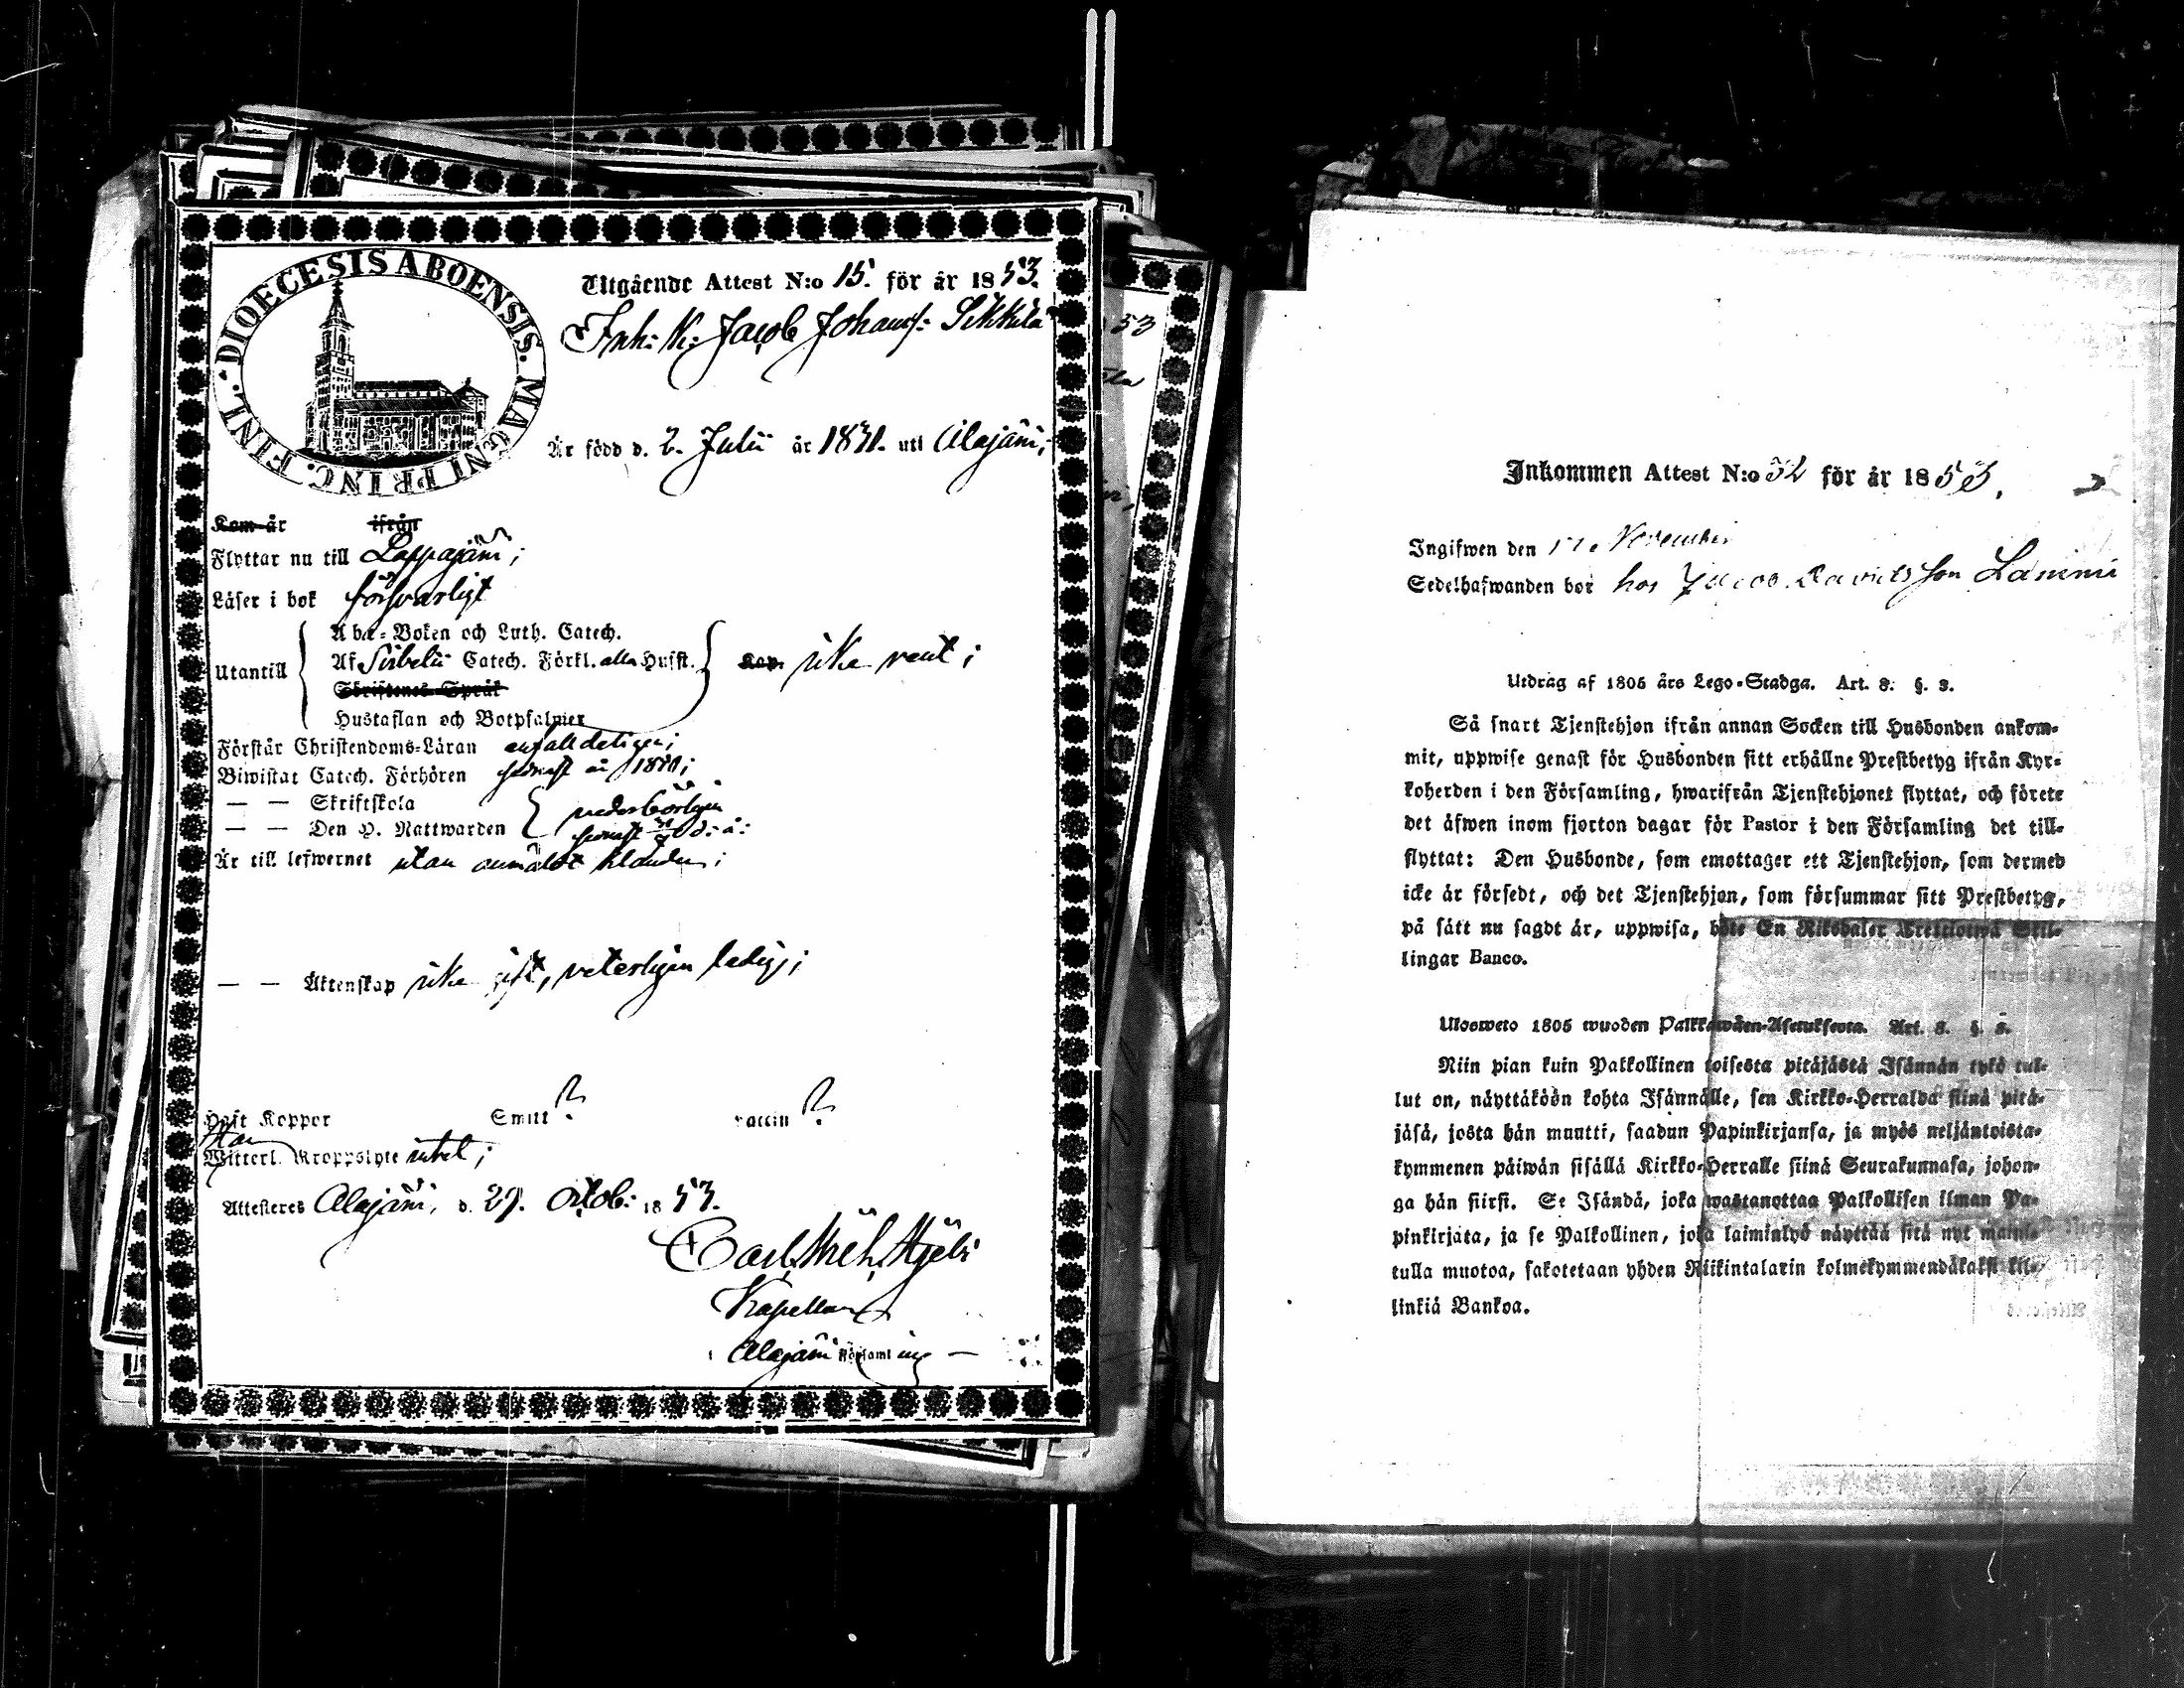 DIOECESIS ABOENSIS. MAGNI PRINC. FINL.
Utgående Attest N:o 15. för år 1853.
Inh: K: Jacob Johanss: Sikkilä
Är född d. 2. Julii år 1831. uti Alajärvi;
Kom år ifrån
Flyttar nu till Lappajärvi;
Läser i bok försvarligt
Utantill
Abc-Boken och Luth. Catech.
Af Svebelii Catech. Förkl. alla Hufst.
Kap. icke rent;
Skriftenes Språk
Hustaflan och Botpsalmer
Förstår Christendoms-Läran enfalldeligen;
Biwistat Catech. Förhören sednast år
— — Skriftskola
— — Den H. Nattwarden
vederbörligen
sednast d: å:
Är till lefwernet utan anmäldt klander;
— — Äktenskap icke gift, veterligen ledig;
Haft Koppor Smitt Vaccin
Witterl. Kroppslyte
Attesteres Alajärvi, d. 27. Octob: 1853.
Carl
Kapellan
i Alajärvi Församling —
53
Inkommen Attest N:o 52 för år 1853.
Ingifwen den 17 November
Sedelhafwanden bor hos Jacob Davidsson
Utdrag af 1805 års Lego-Stadga. Art. 8. §. 3.
Så snart Tjenstehjon ifrån annan Socken till Husbonden ankom-
mit, uppwise genast för Husbonden sitt erhållne Prestbetyg ifrån Kyr-
koherden i den Församling, hwarifrån Tjenstehjonet flyttat, och förete
det äfwen inom fjorton dagar för Pastor i den Församling det till-
flyttat: Den Husbonde, som emottager ett Tjenstehjon, som dermed
icke är försedt, och det Tjenstehjon, som försummar sitt Prestbetyg,
på sätt nu sagdt är, uppwisa, böte En Riksdaler Trettiotwå Skil-
lingar Banco.
Ulosweto 1805 wuoden Palkkawäen-Asetuksesta. Art. 8. §. 3.
Niin pian kuin Palkollinen toisesta pitäjästä Isännän tykö tul-
lut on, näyttäköön kohta Isännälle, sen Kirkko-Herralda siinä pitä-
jäsä, josta hän muutti, saadun Papinkirjansa, ja myös neljäntoista-
kymmenen päiwän sisällä Kirkko-Herralle siinä Seurakunnasa, johon-
ga hän siirsi. Se Isändä, joka wastanottaa Palkollisen ilman Pa-
pinkirjata, ja se Palkollinen, joka laiminlyö näyttää sitä nyt maini-
tulla muotoa, sakotetaan yhden Riikintalarin kolmekymmendäkaksi kil-
linkiä Bankoa.